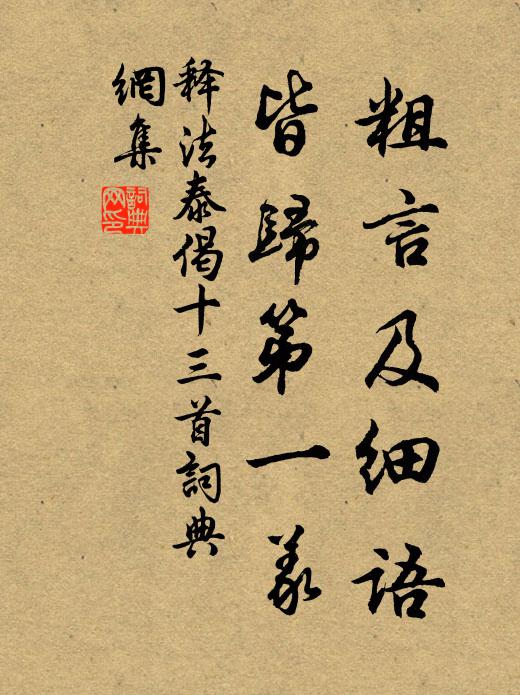 粗言及细语
皆歸第一义
释法泰偈十三首詞典
網集
詞典
网印